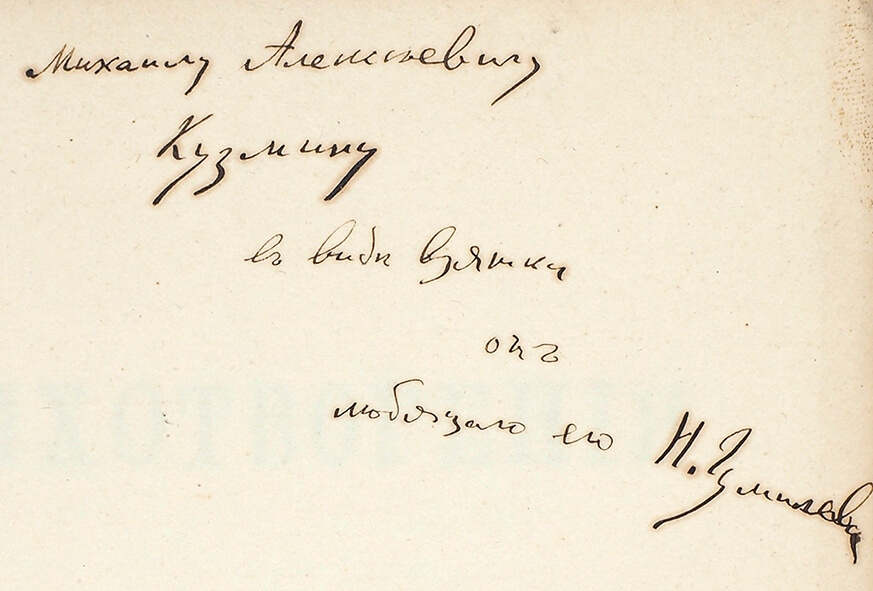 Михаилу Алексѣевичу
Кузмину
въ видѣ взятки
отъ
любящаго его Н. Гумилева